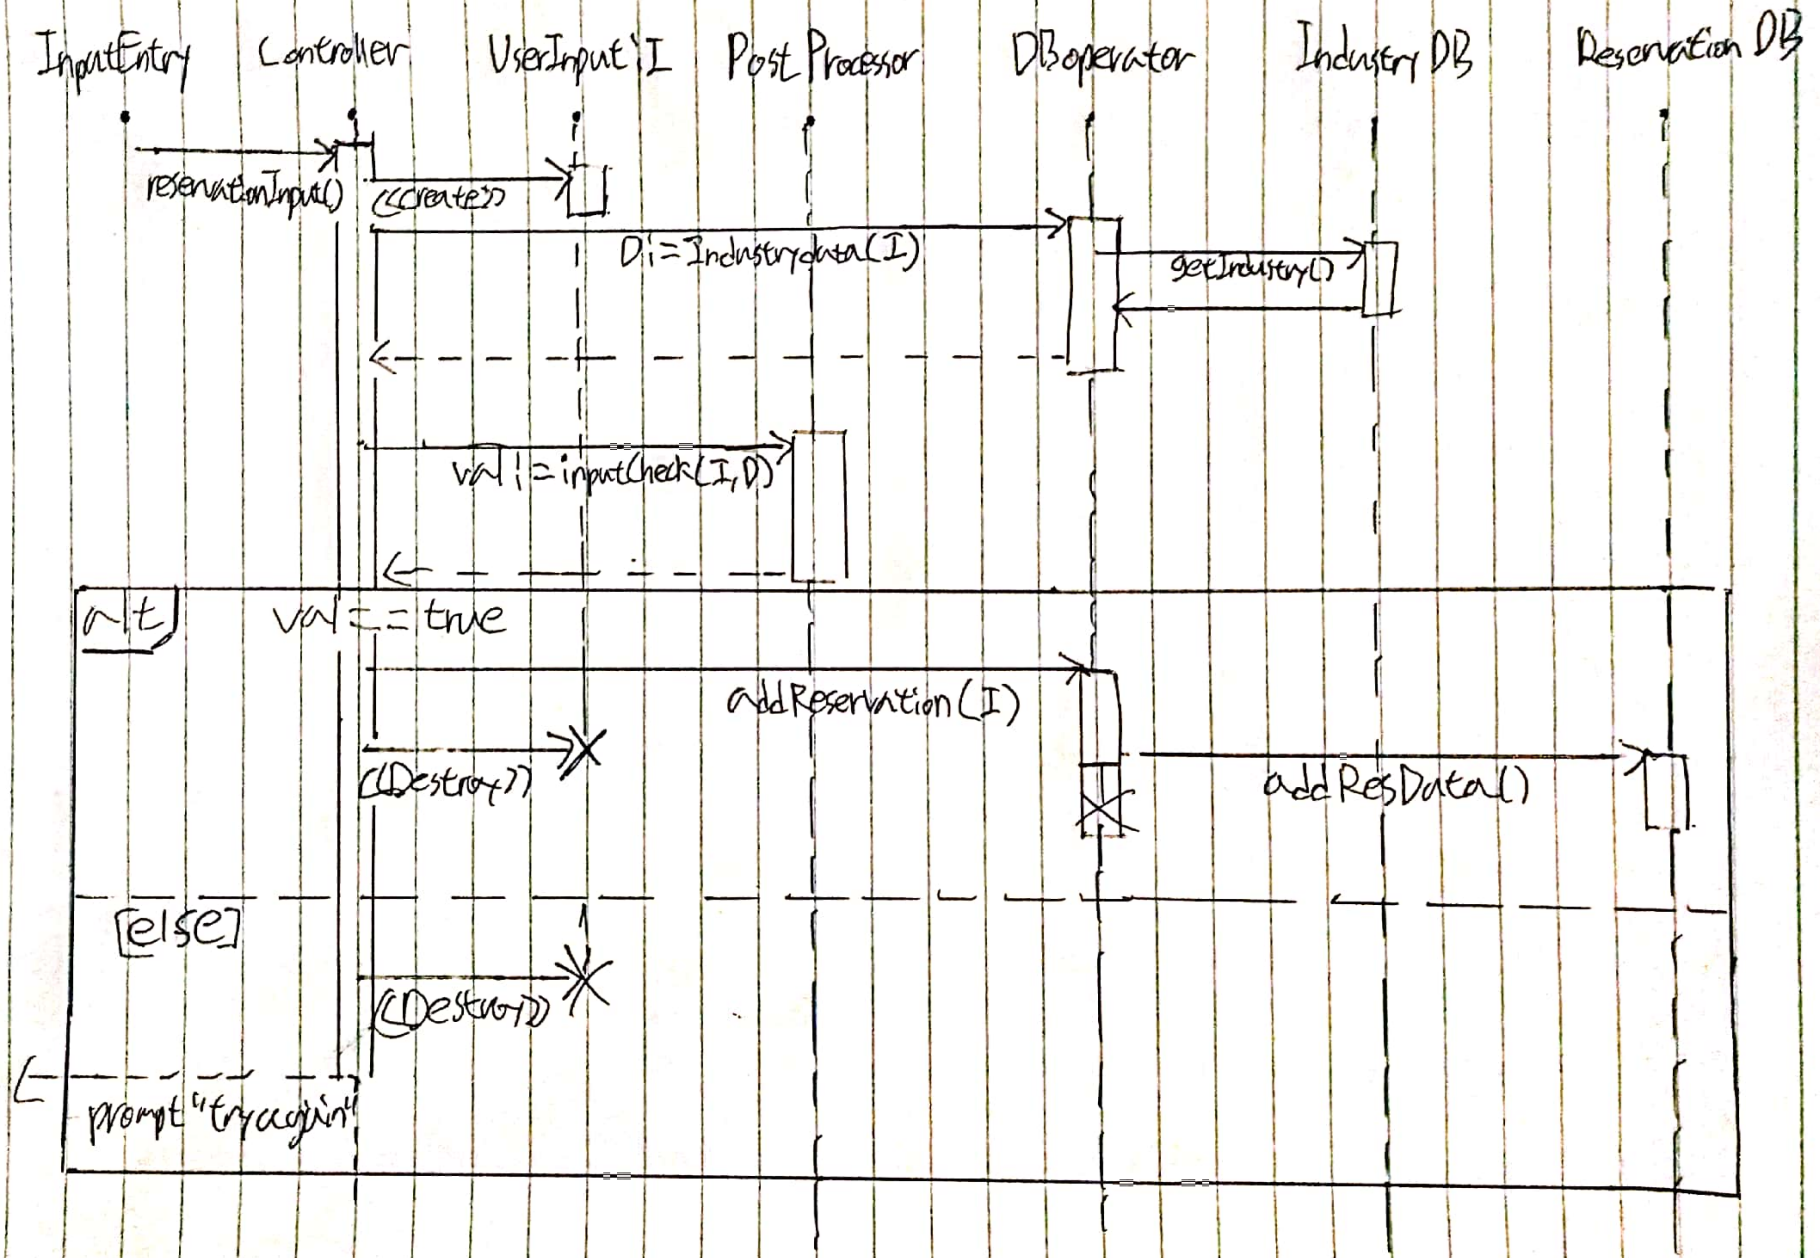 InputEntry Controller UserInput:I PostProcessor DBoperator IndustryDB ReservationDB
reservationInput()
<<create>>
D:=Industrydata(I)
getIndustry()
val:=inputCheck(I,D)
alt val==true
addReservation(I)
<<Destroy>>
addResData()
[else]
<<Destroy>>
prompt "try again"